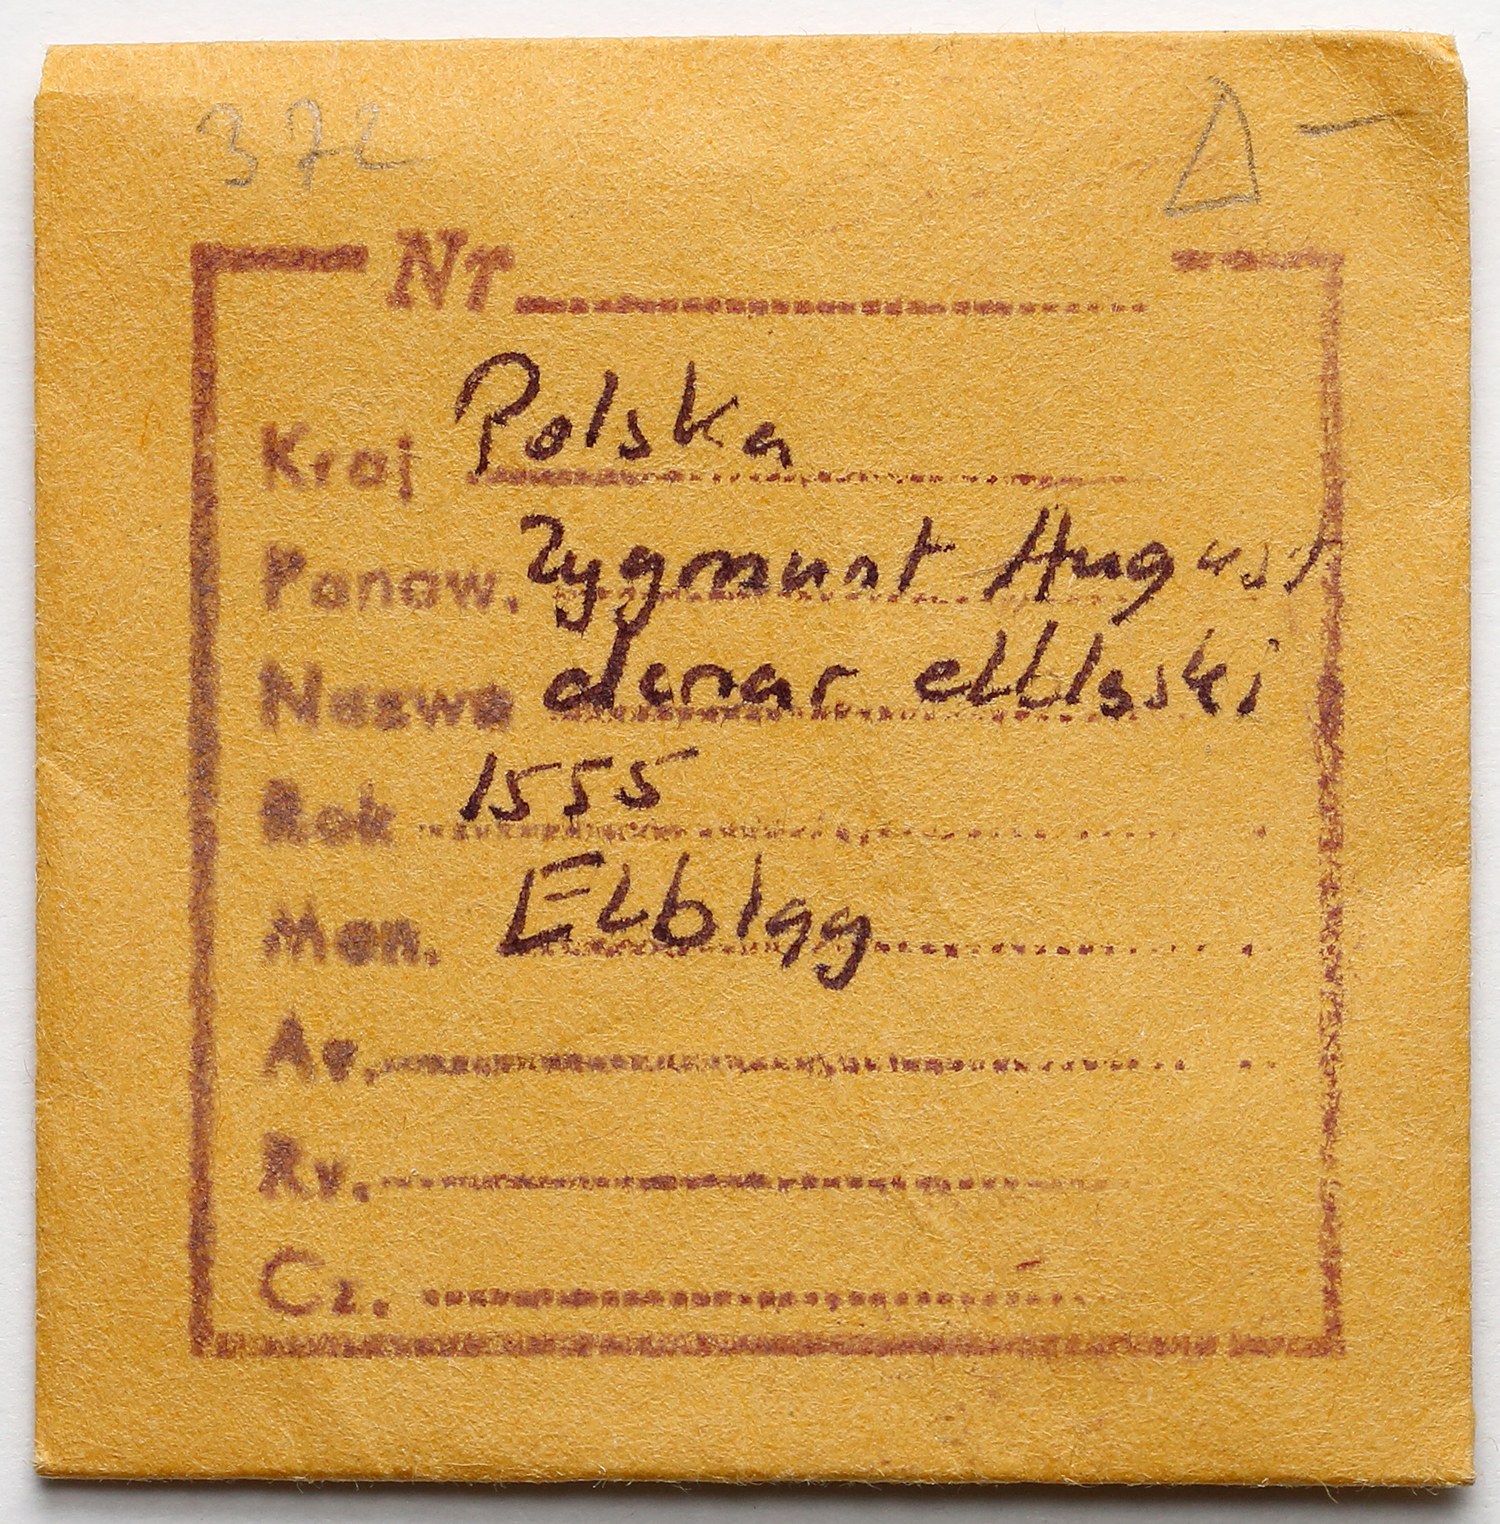 372 Δ —
Nr
Kraj Polska
Panow. Zygmunt August
Nazwa denar elbląski
Rok 1555
Men. Elbląg
Av.
Rv.
Cz.